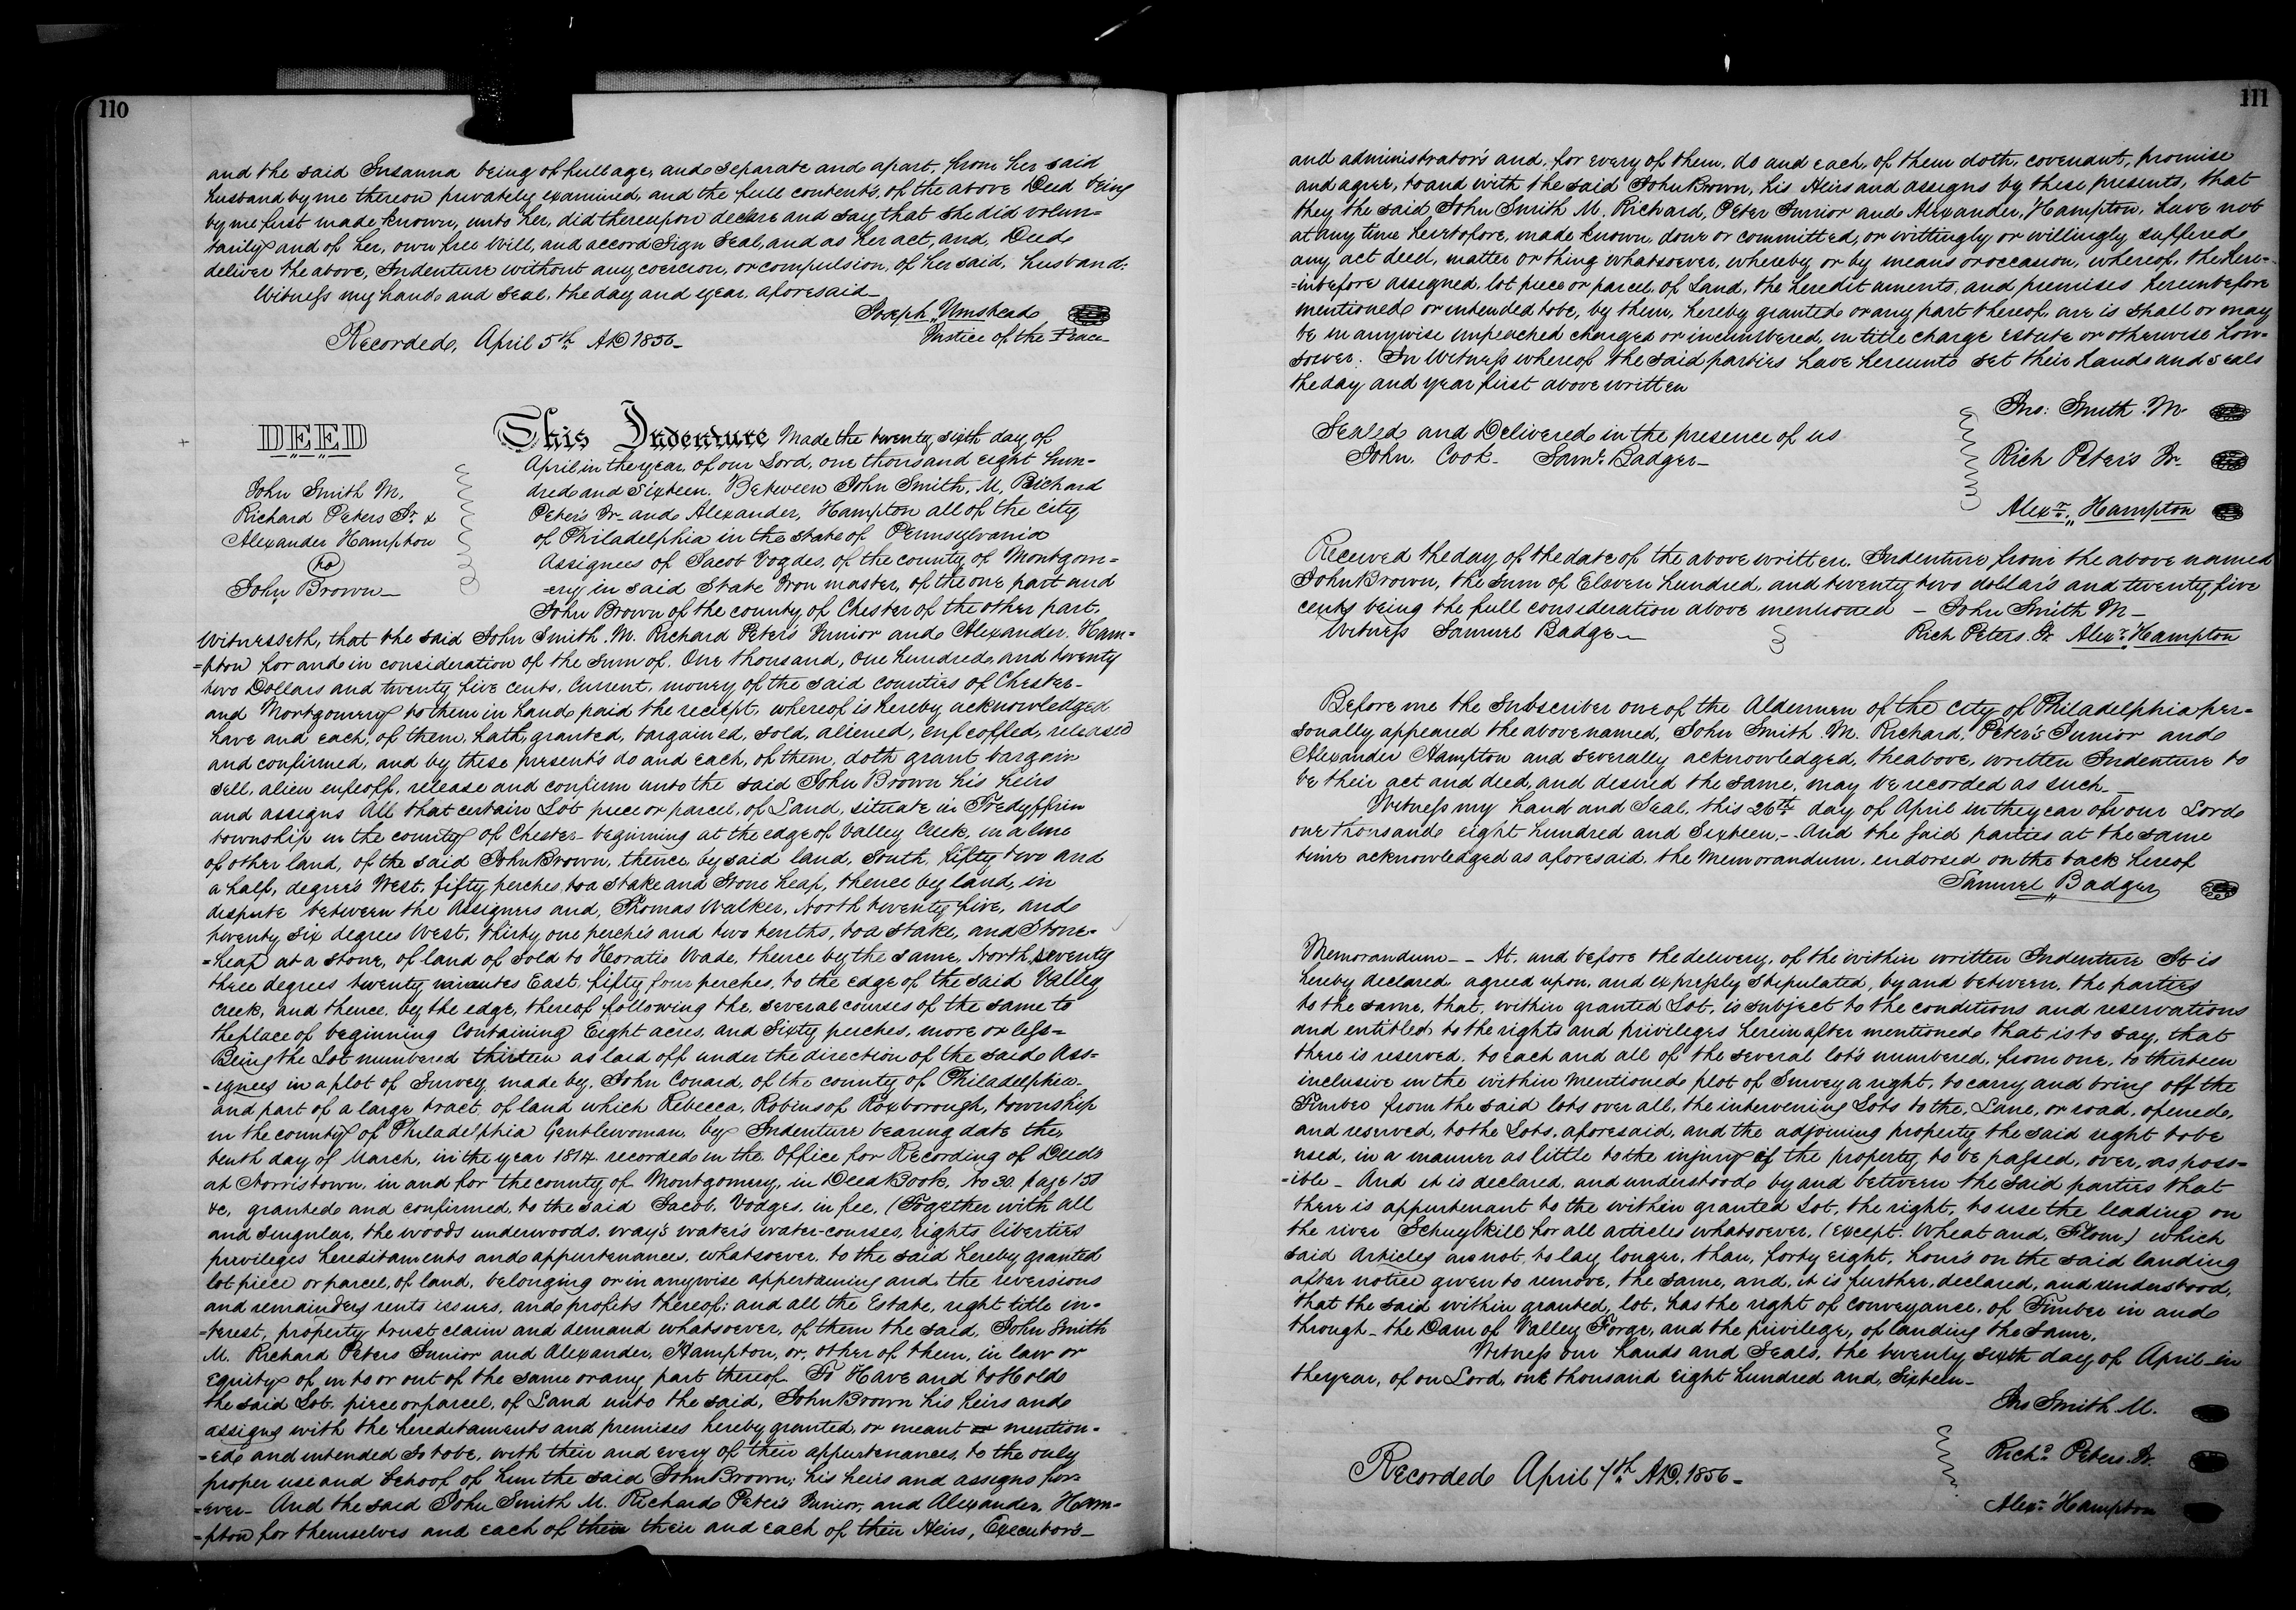 110
and the said Susanna being of full age, and separate and apart, from her said
husband by me thereon privately examined, and the full contents, of the above Deed being
by me first made known, unto her, did thereupon declare and say that she did volun=
tarily and of her, own free Will, and accord Sign Seal, and as her act, and, Deed
deliver the above, Indenture without any coercion, or compulsion, of her said, husband:
Witness my hand and seal, the day and year, aforesaid_
Joseph Umstead
Justice of the Peace
Recorded, April 5th AD 1856_
DEED
John Smith M,
Richard Peters Jr &
Alexander Hampton
to
John Brown_
This Indenture Made the twenty sixth day of
April, in the year, of our Lord, one thousand eight hun=
dred and Sixteen. Between John Smith, M, Richard
Peter's Jr_ and Alexander, Hampton all of the city
of Philadelphia in the state of Pennsylvania
Assignees of Jacob Vogdes, of the county of Montgom=
=ery in said State Iron master, of the one part and
John Brown of the county of Chester of the other part.
Witnesseth, that the said John Smith. M. Richard Peter's Junior and Alexander. Ham=
=pton for and in consideration of the sum of. One thousand, one hundred and twenty
two Dollars and twenty five cents, Current, money of the said counties of Chester_
and Montgomery to them in hand paid the reciept, whereof is hereby acknowledged
have and each, of them, hath, granted, bargained, sold, aliened, enfeoffed, released
and confirmed, and by these present's do and each, of them, doth grant bargain
sell, alien enfeoff, release and confirm unto the said John Brown his heirs
and assigns All that certain Lot piece or parcel, of Land, situate in Tredyffrin
township in the county of Chester_ beginning at the edge of Valley Creek, in a line
of other land, of the said John Brown, thence by said land, South, fifty two and
a half, degree's West, fifty perches, to a stake and Stone heap, thence by land, in
dispute between the Assignees and, Thomas Walker, North twenty five, and
twenty six degrees West, thirty one perche's and two tenths, to a stake, and Stone=
=heap at a stone, of land of sold to Horatio Wade, thence by the same, North, seventy
three degrees twenty minutes East, fifty four perches, to the edge of the said Valley
Creek, and thence, by the edge, thereof following the, several courses of the same to
the place of beginning Containing Eight acres, and Sixty perches, more or less=
Being the Lot numbered thirteen as laid off under the direction of the said Ass=
=ignees in a plot of Survey, made by, John Conard, of the county of Philadelphia_
and part of a large tract of land which Rebecca, Robins of Roxborough, township
in the county of Philadelphia Gentlewoman, by Indenture bearing date the,
tenth day of March, in the year 1814 recorded in the Office for Recording of Deeds
at Norristown, in and for the county of Montgomery, in Deed Book, No 30. page 150
&c, granted and confirmed, to the said Jacob, Vodges, in fee, (Together with all
and singular, the woods underwoods, way's water's water-courses, rights liberties
privileges hereditaments and appurtenances, whatsoever, to the said hereby granted
lot piece or parcel, of land, belonging or in anywise appertaining and the reversions
and remainders rents issues, and profits thereof; and all the Estate, right title in=
=terest, property trust claim and demand whatsoever, of them the said, John Smith
M. Richard Peters Junior and Alexander, Hampton, or, other of them, in law or
equity of in to or out of the same or any part thereof. To Have and to Hold
the said Lot, piece or parcel, of Land unto the said, John Brown his heirs and
assigns with the hereditaments and premises hereby granted, or meant or mention=
=ed and intended so to be, with their and every of their appurtenances, to the only
proper use and behoof of him the said John Brown; his heirs and assigns for=
=ever_ And the said John Smith M. Richard Peter's Junior, and Alexander, Ham=
=pton for themselves and each of their and each of their Heirs, Executors_
111
and administrator's and, for every of them, do and each, of them doth, covenant, promise
and agree, to and with the said John Brown, his Heirs and assigns by these presents, that
they the said, John Smith M, Richard, Peter Junior and Alexander, Hampton, have not
at any time heretofore, made known, done or committed, or wittingly or willingly suffered
any act deed, matter or thing whatsoever, whereby or by means or occasion, whereof, the here=
=inbefore assigned, lot piece or parcel, of Land, the heredit aments, and premises hereinbefore
mentioned or intended to be, by them, hereby granted or any part thereof, are is shall or may
be in anywise impeached charged or incumbered, in title charge estate or otherwise how=
soever. In Witness whereof the said parties have hereunto set their hand and seals
the day and year first above written
Sealed and Delivered in the presence of us
John. Cook_ Saml. Badger_
Jno: Smith M
Rich Peters Jr_
Alexr. Hampton
Received the day of the date of the above written, Indenture from the above named
John Brown, the sum of Eleven hundred, and twenty two dollar's and twenty five
cents being the full consideration above mentioned _ John Smith M_
Witness Samuel Badge_
Rich Peters. Jr Alexr. Hampton
Before me the Subscriber one of the Aldermen of the City of Philadelphia per=
sonally appeared the above named, John Smith. M. Richard, Peter's Junior and
Alexander Hampton and severally acknowledged, the above, written Indenture to
be their act and deed, and desired the same, may be recorded as such_
Witness my hand and Seal, this 26th day of April in the year of our Lord
one thousand eight hundred and Sixteen._ And the said parties at the same
time acknowledged as aforesaid, the Memorandum, endorsed on the back hereof
Samuel Badger
Memorandum_ _ At, and before the delivery, of the within written Indenture It is
hereby declared, agreed upon, and expressly stipulated, by and between, the parties
to the same, that, within granted Lot, is subject to the conditions and reservations
and entitled to the rights and privileges hereinafter mentioned that is to say, that
there is reserved, to each and all of the several lot's numbered, from one, to thirteen
inclusive in the within mentioned plot of Survey a right, to carry and bring off the
Timber from the said lots over all, the intervening Lots to the, Lane, or road, opened,
and reserved, to the Lots, aforesaid, and the adjoining property the said right to be
used, in a manner as little to the injury of the property to be passed, over, as poss=
=ible_ And it is declared, and understood by and between the said parties that
there is appurtenant to the within granted Lot, the right, to use the leading on
the river Schuylkill for all articles whatsoever, (except, Wheat and, Flour,) which
said Articles are not, to lay longer, than, forty eight, hours on the said landing
after notice given to remove, the same, and, it is further, declared, and understood,
that the said within granted, lot, has the right of conveyance, of Timber in and
through_ the Dam of Valley Forge, and the privilege, of landing the same,
Witness our hands and Seals, the twenty sixth day of April_in
the year, of ou Lord, one thousand eight hundred and, Sixteen_
Jno Smith. M.
Richd Peters. Jr.
Alexr Hampton
Recorded April 7th AD. 1856_